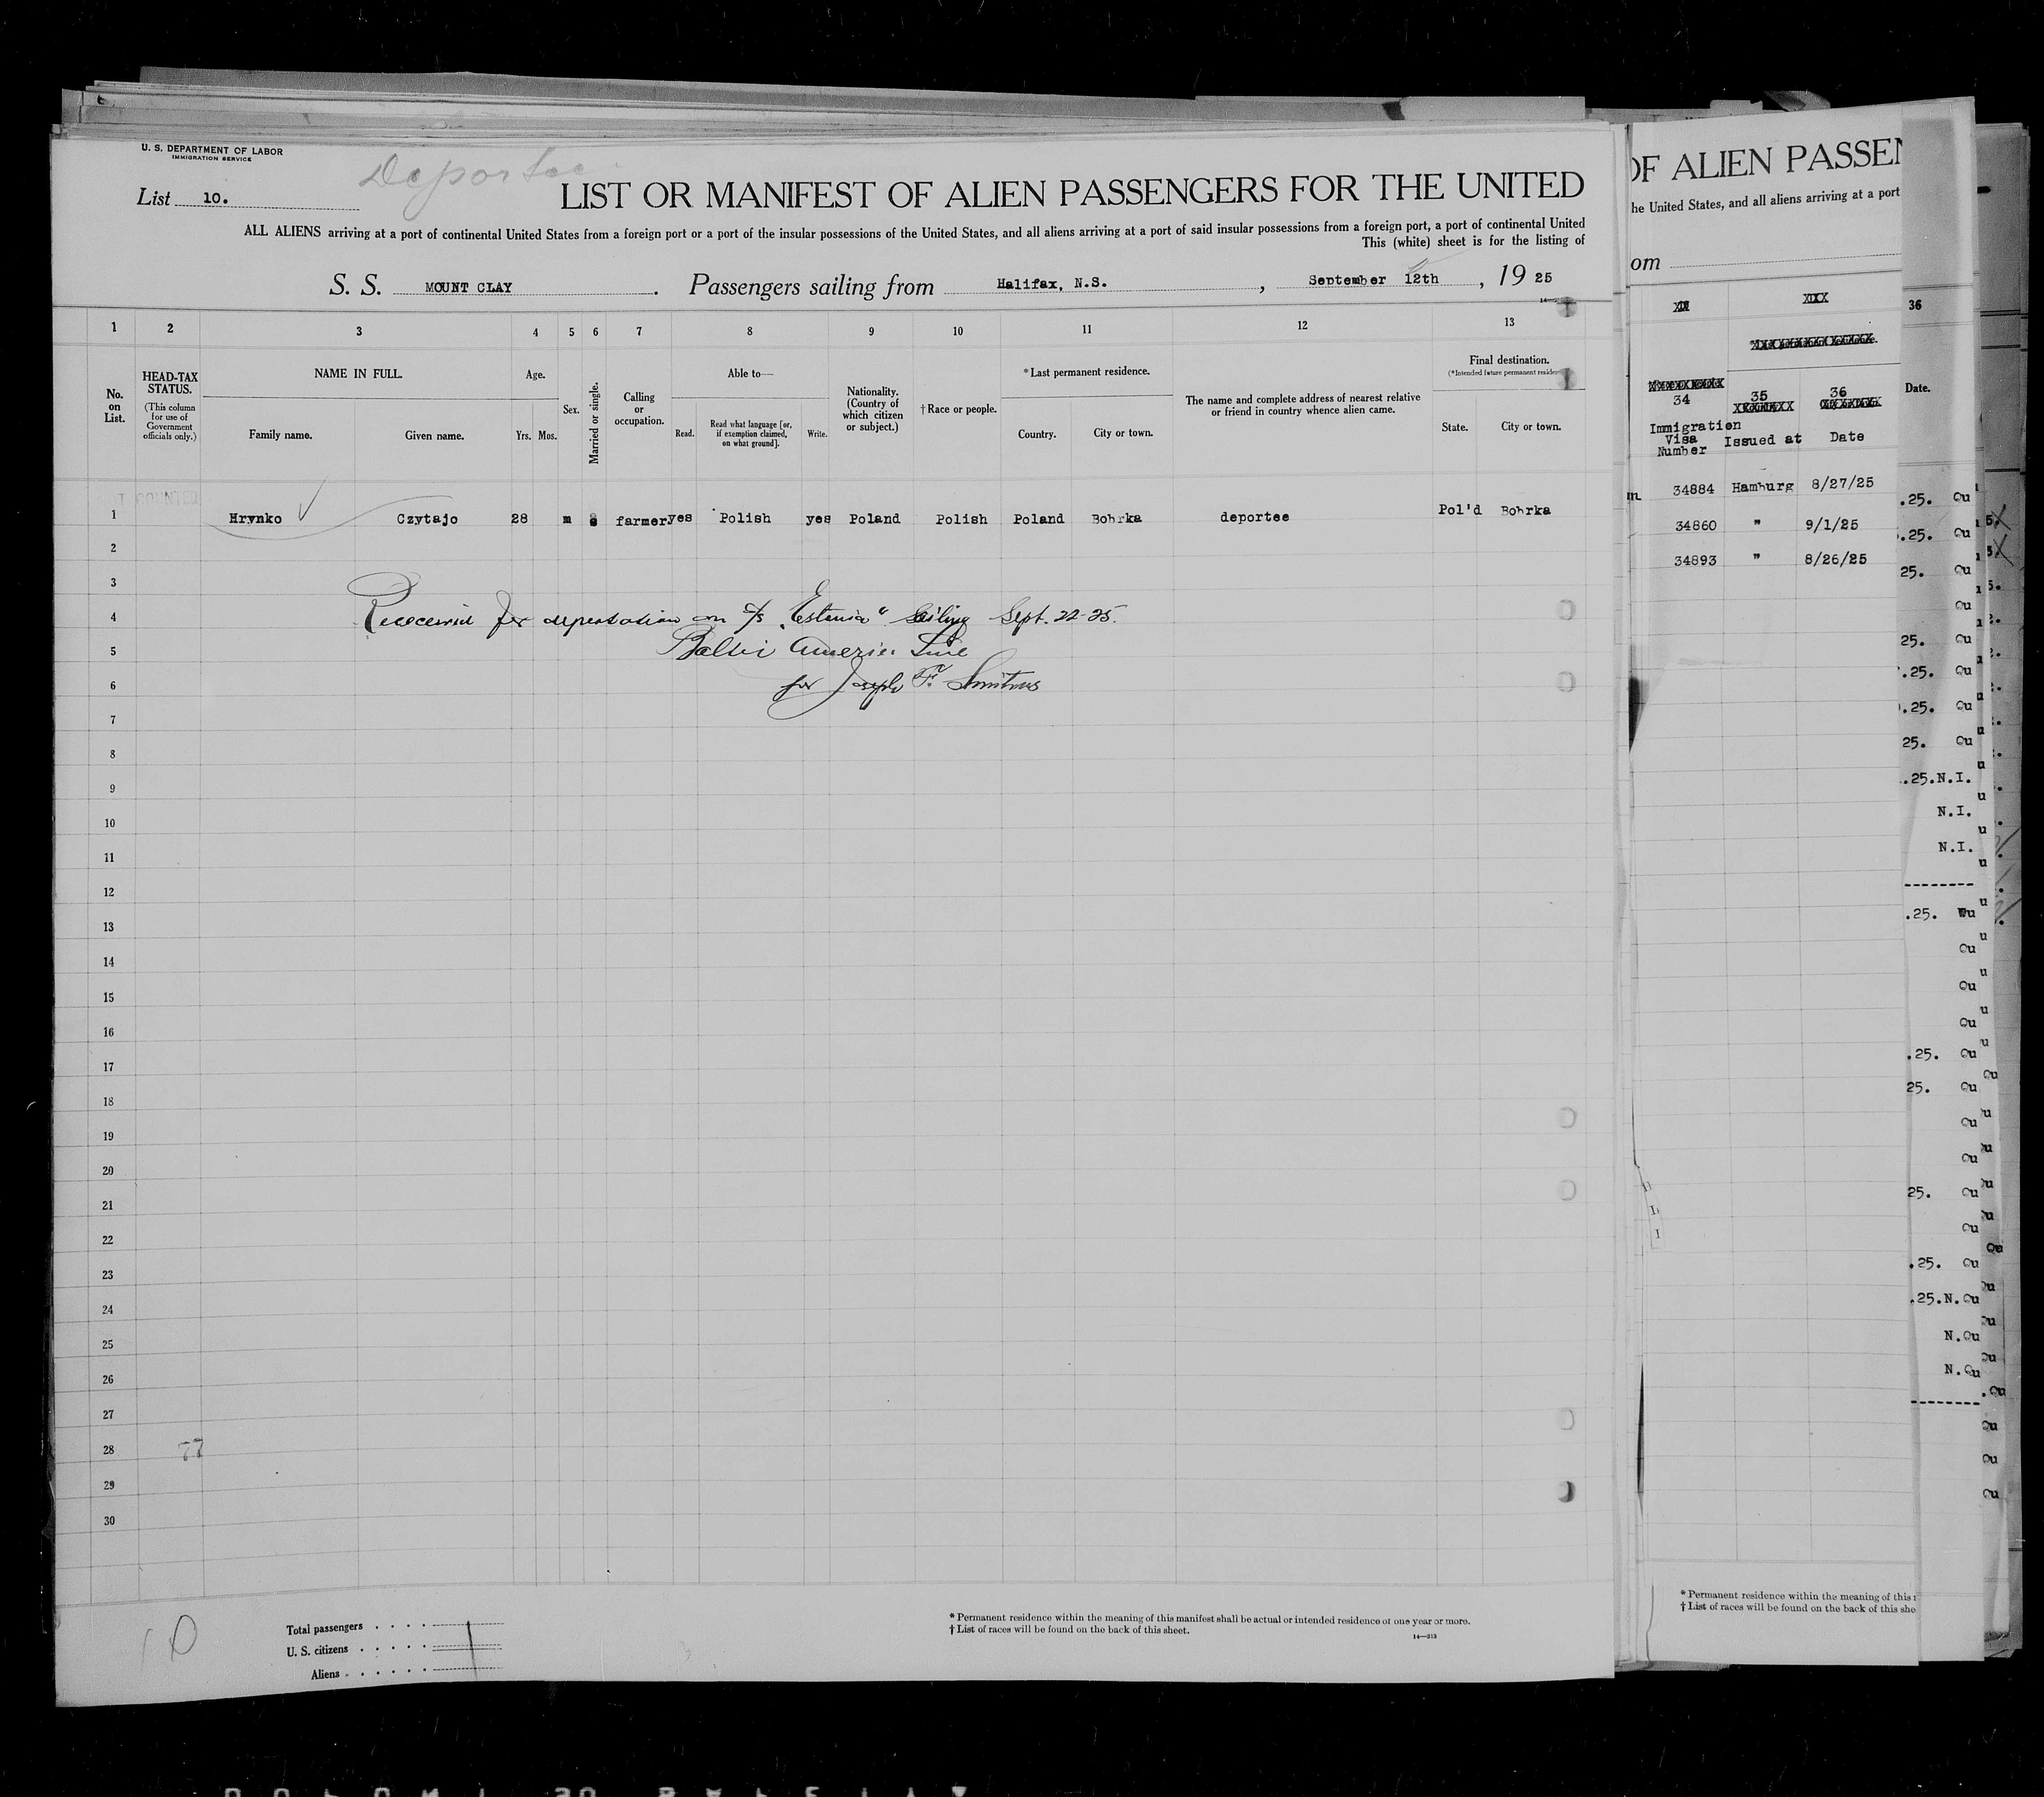 U. S. DEPARTMENT OF LABOR
IMMIGRATION SERVICE
Deportee
List 10.
LIST OR MANIFEST OF ALIEN PASSENGERS FOR THE UNITED
ALL ALIENS arriving at a port of continental United States from a foreign port or a port of the insular possessions of the United States, and all aliens arriving at a port of said insular possessions from a foreign port, a port of continental United
This (white) sheet is for the listing of
S. S. MOUNT CLAY. Passengers sailing from Halifax, N.S., September 12th, 19 25
1 2 3 4 5 6 7 8 9 10 11 12 13
No. on List.
HEAD-TAX STATUS.
(This column for use of Government officials only.)
NAME IN FULL.
Family name. Given name.
Age.
Yrs. Mos.
Sex.
Married or single.
Calling or occupation.
Able to—
Read.
Read what language [or, if exemption claimed, on what ground].
Write.
Nationality. (Country of which citizen or subject.)
†Race or people.
*Last permanent residence.
Country. City or town.
The name and complete address of nearest relative or friend in country whence alien came.
Final destination.
(*Intended future permanent
State. City or town.
COUNTED
1 Hrynko Czytajo 28 m s farmer yes Polish yes Poland Polish Poland Bobrka deportee Pol'd Bobrka
2
3
4
for deportation on s/s "Estonia" sailing Sept. 22-25.
5
Line
6
for Joseph F.
7
8
9
10
11
12
13
14
15
16
17
18
19
20
21
22
23
24
25
26
27
28 77
29
30
10
Total passengers
U. S. citizens
Aliens
1
*Permanent residence within the meaning of this manifest shall be actual or intended residence of one year or more.
†List of races will be found on the back of this sheet.
14—213
OF ALIEN PASSEN
he United States, and all aliens arriving at a port
om
34 35 36
Immigration Visa Number
Issued at
Date
34884 Hamburg 8/27/25
34860 " 9/1/25
34893 " 8/26/25
*Permanent residence within the meaning of this
†List of races will be found on the back of this she
36
Date.
.25. Qu
.25. Qu
25. Qu
Qu
25. Qu
.25. Qu
.25. Qu
25. Qu
.25.N.I.
N.I.
N.I.
.25.
Qu
Qu
Qu
.25. Qu
25. Qu
Qu
Qu
25. Qu
Qu
.25. Qu
.25.N.Qu
N.Qu
N.Qu